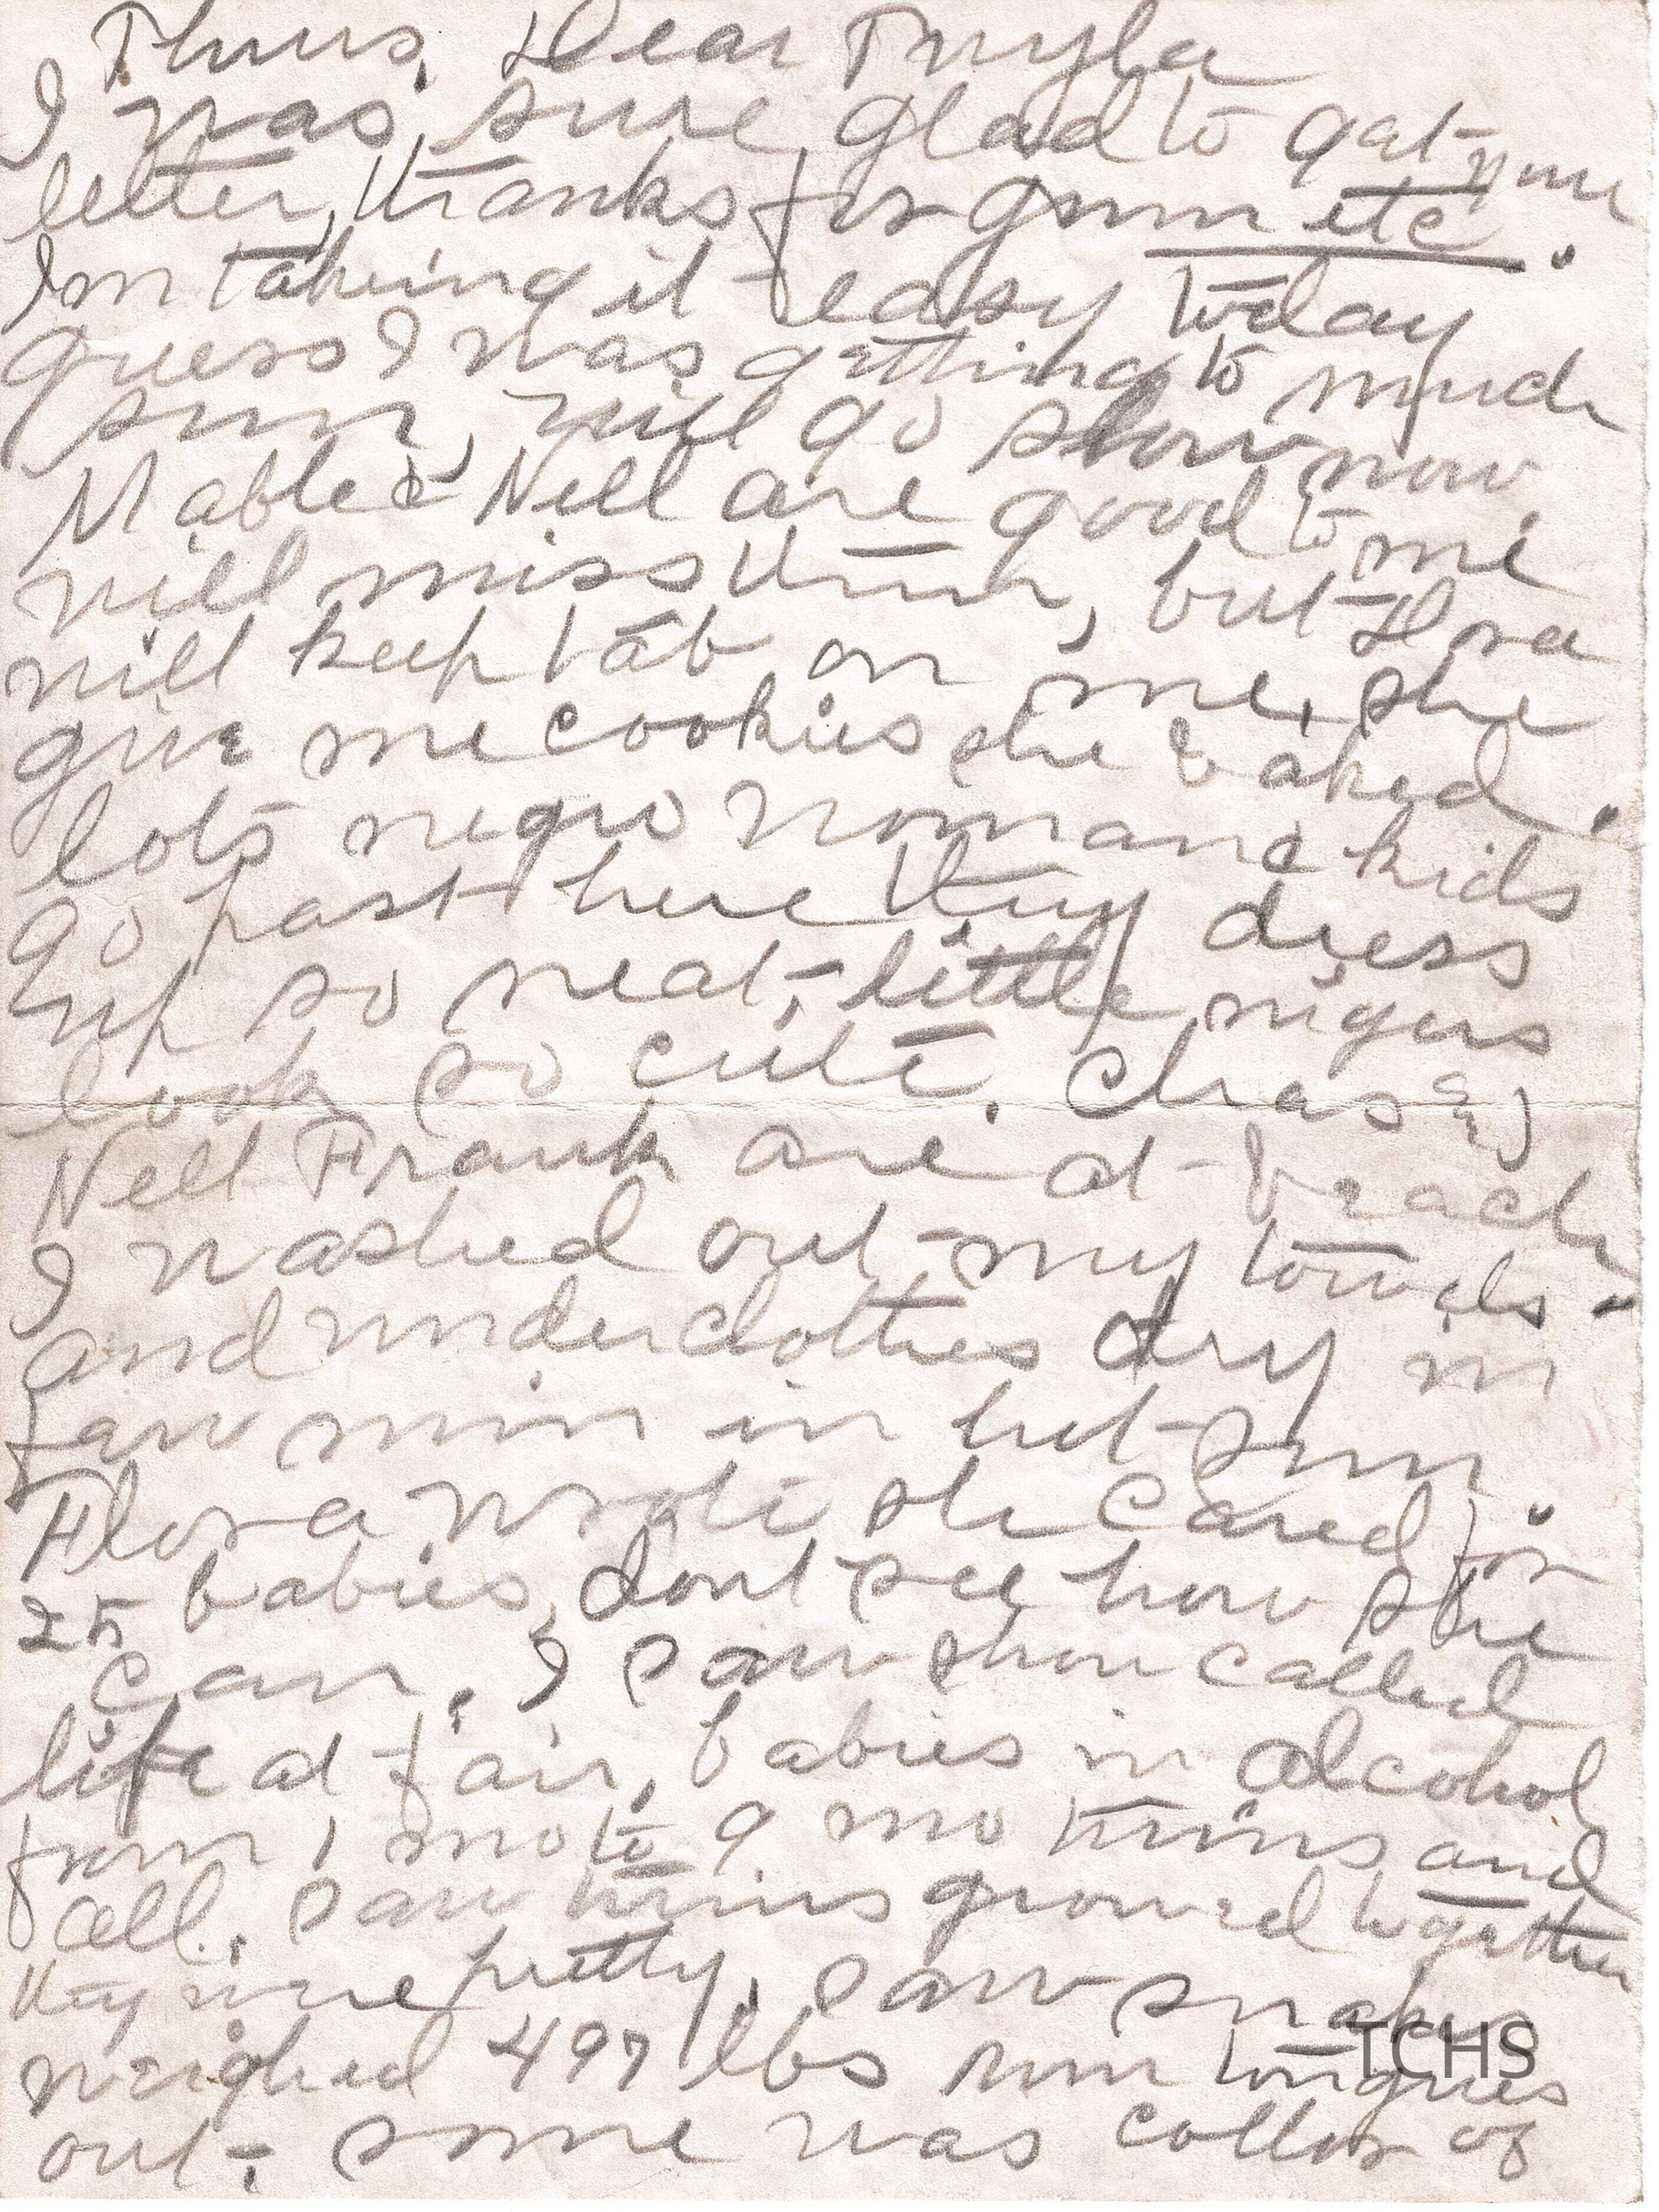 Thurs, Dear Twyla
I was, sure glad to get your
letter, thanks for gum etc.
Im takeing it easy today
guess I was getting to much
sun, will go slow now
Mable & Nell are good to me
will miss them, but Dora
will keep tab on me, she
give me cookies she baked.
lots negro woman & kids
go past here they dress
up so neat, little nigers
look so cute. Chas and
Nell Frank are at beach
I washed out my towels.
and underclothes dry in
faw min in hot sun
Flora wrote she cared for
25 babies, dont see how she
can. I saw show called
life at fair, babies in alcohol
from 1 mo to 9 mo twins and
all. saw twins growed together
they were pretty, saw snakes
weighed 497 lbs run tongues
out, some was coller of
TCHS